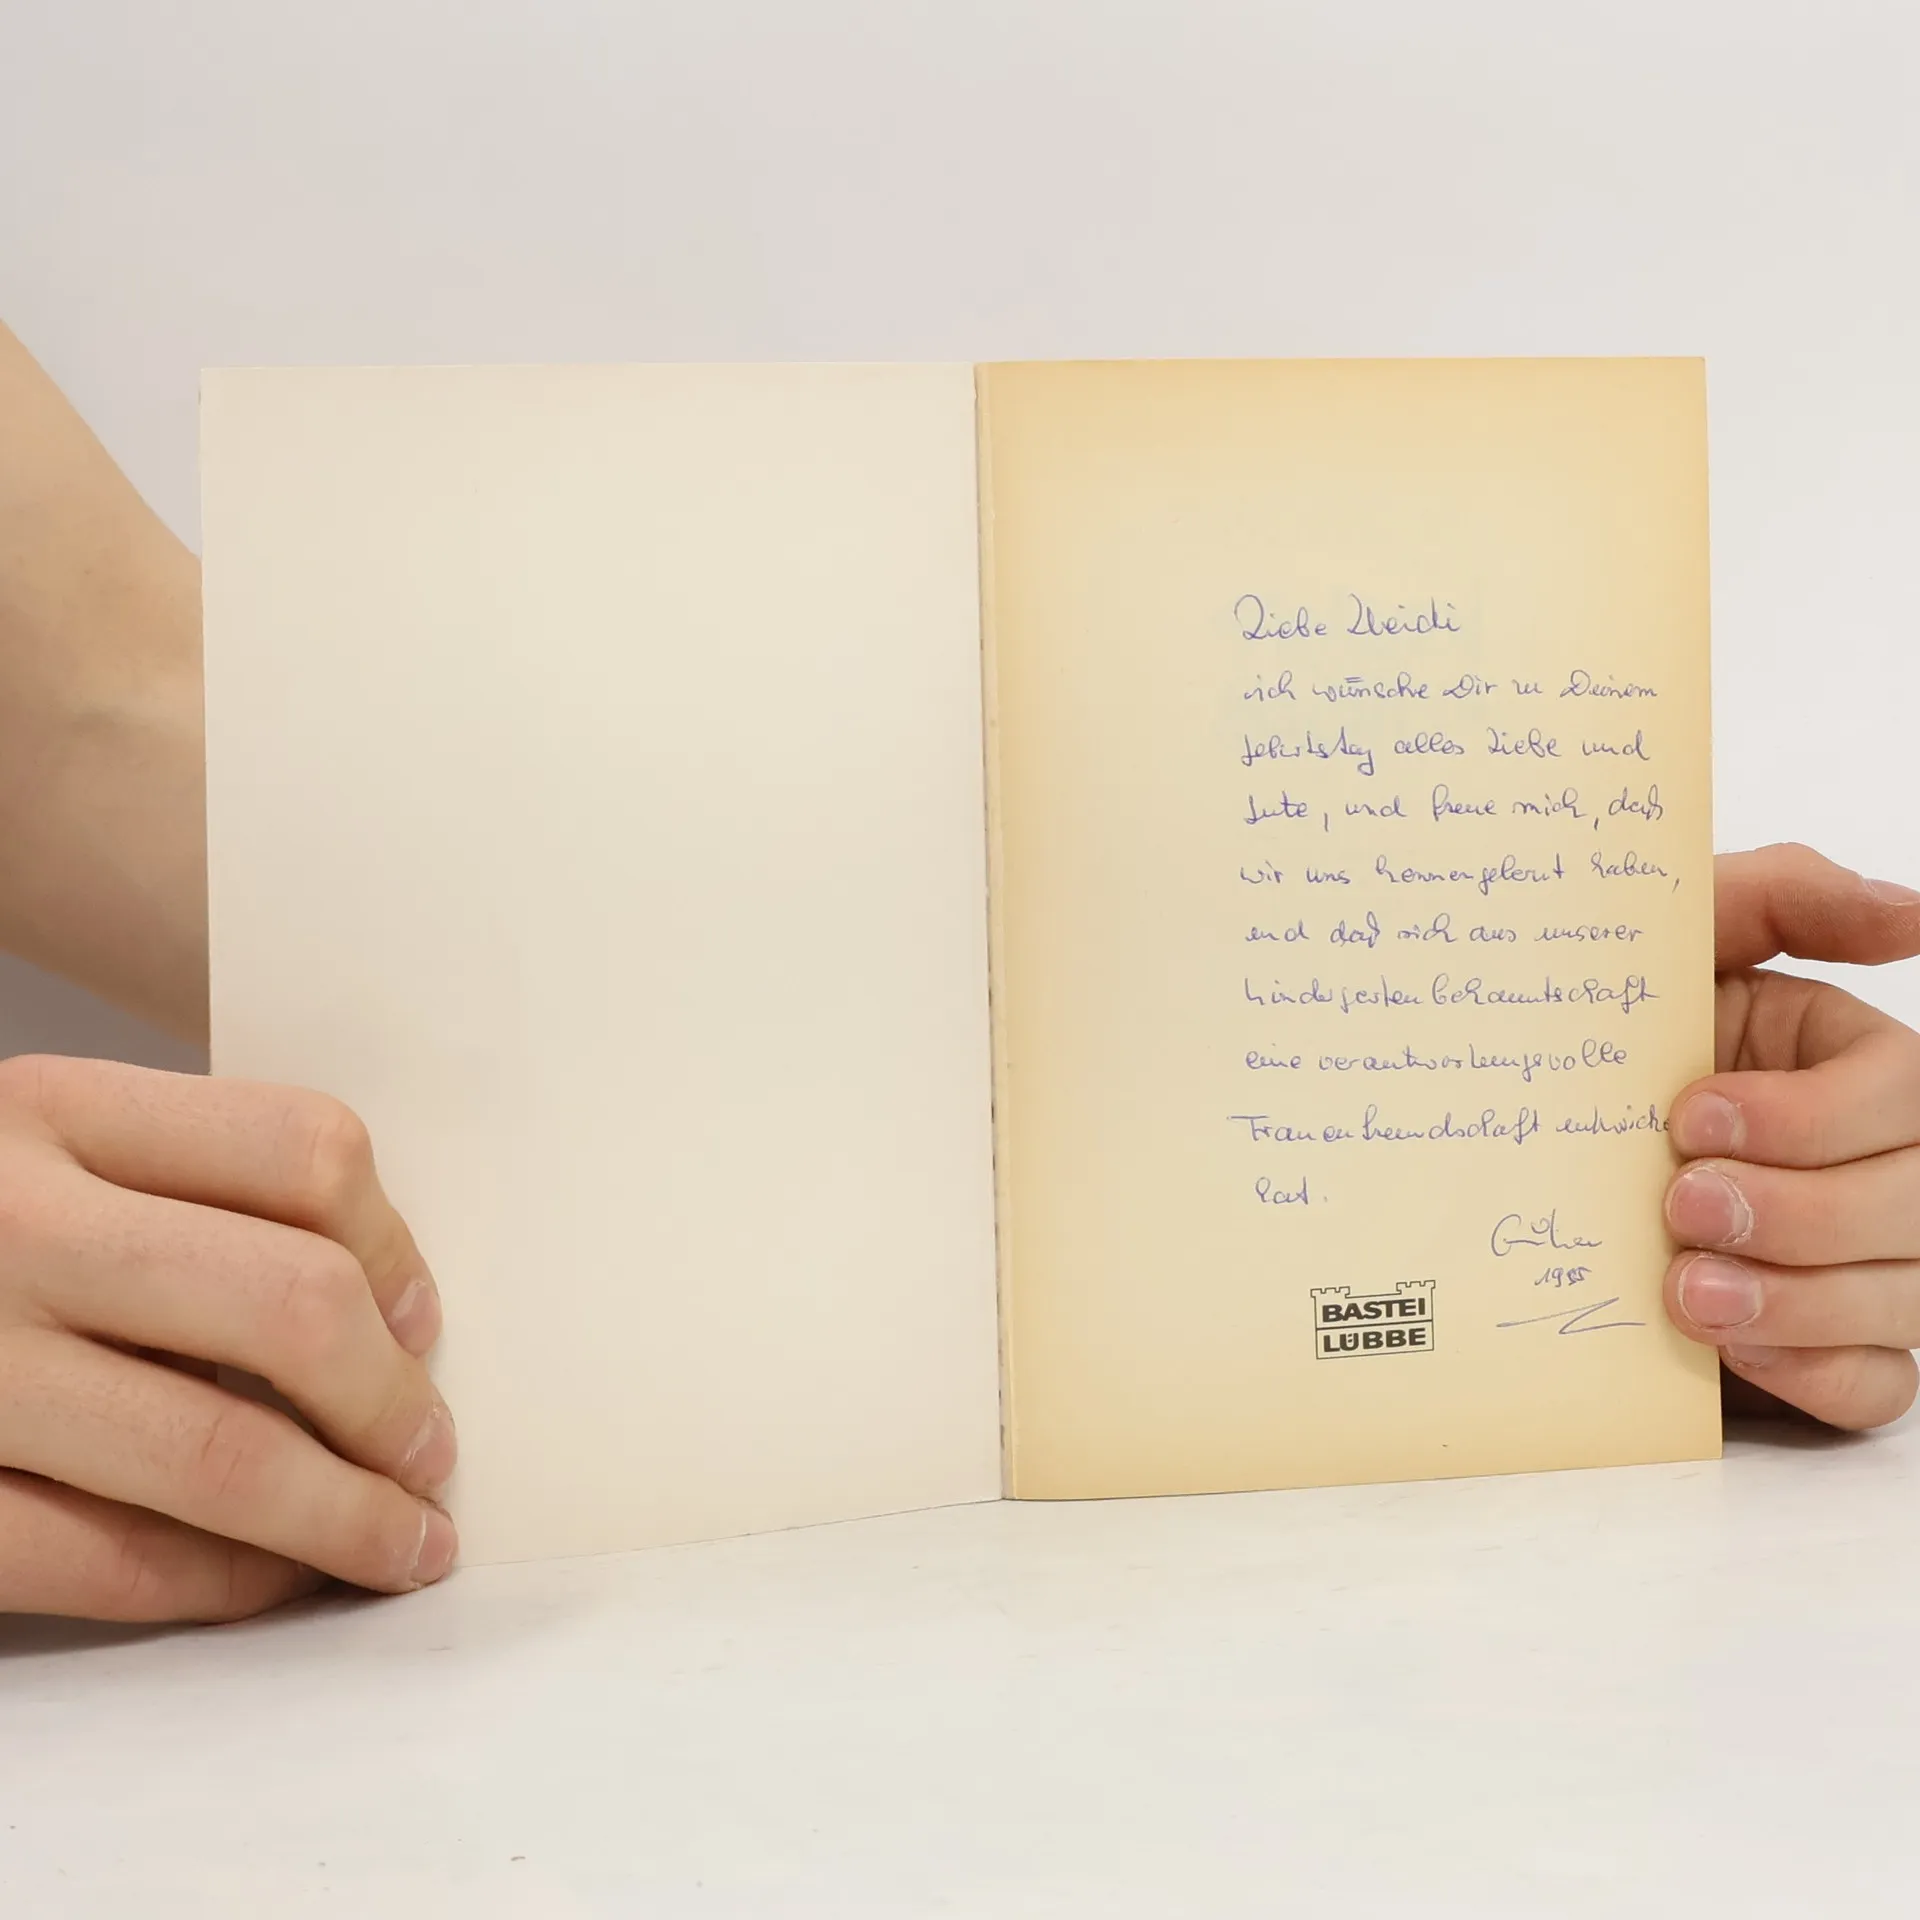 Liebe Heidi
ich wünsche Dir zu Deinem
Geburtstag alles Liebe und
Gute, und freue mich, daß
wir uns kennengelernt haben,
und daß sich aus unserer
Kindergartenbekanntschaft
eine verantwortungsvolle
Frauenfreundschaft entwick
hat.
1985
BASTEI
LÜBBE